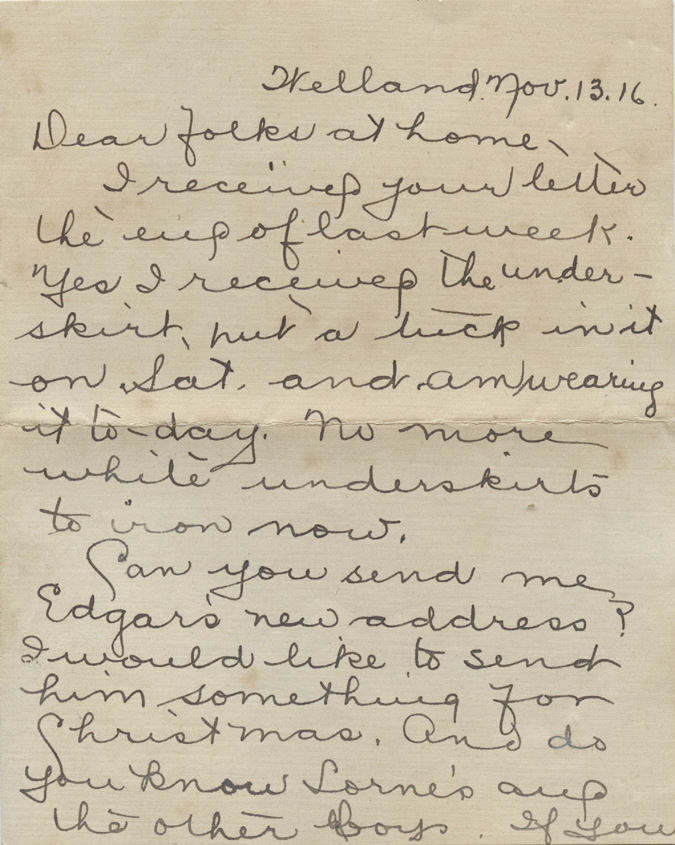 Welland Nov. 13. 16.
Dear folks at home,
I received your letter
the end of last week.
Yes I received the under-
skirt, put a tuck in it
on Sat. and am wearing
it to-day. No more
white underskirts
to iron now.
Can you send me
Edgar's new address?
I would like to send
him something for
Christmas. And do
you know Lorne's and
the other boys. If you